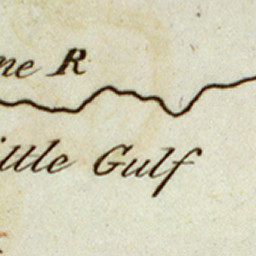 ne R
ittle Gulf